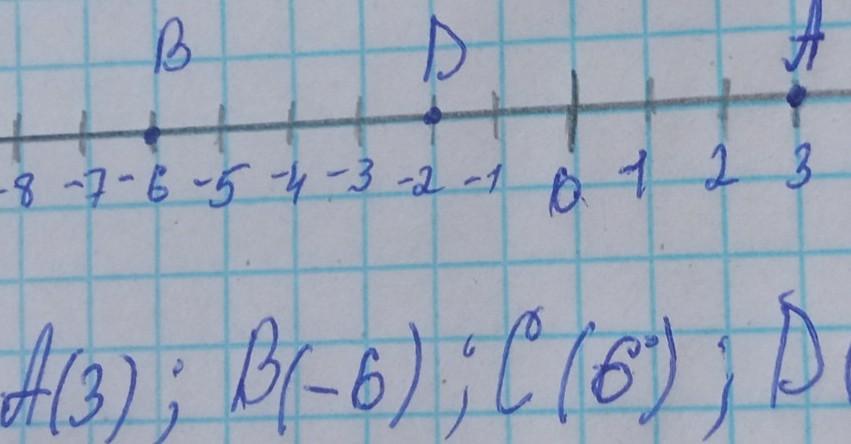 B D A
-8 -7 -6 -5 -4 -3 -2 -1 0 1 2 3
A(3); B(-6); C(6); D(